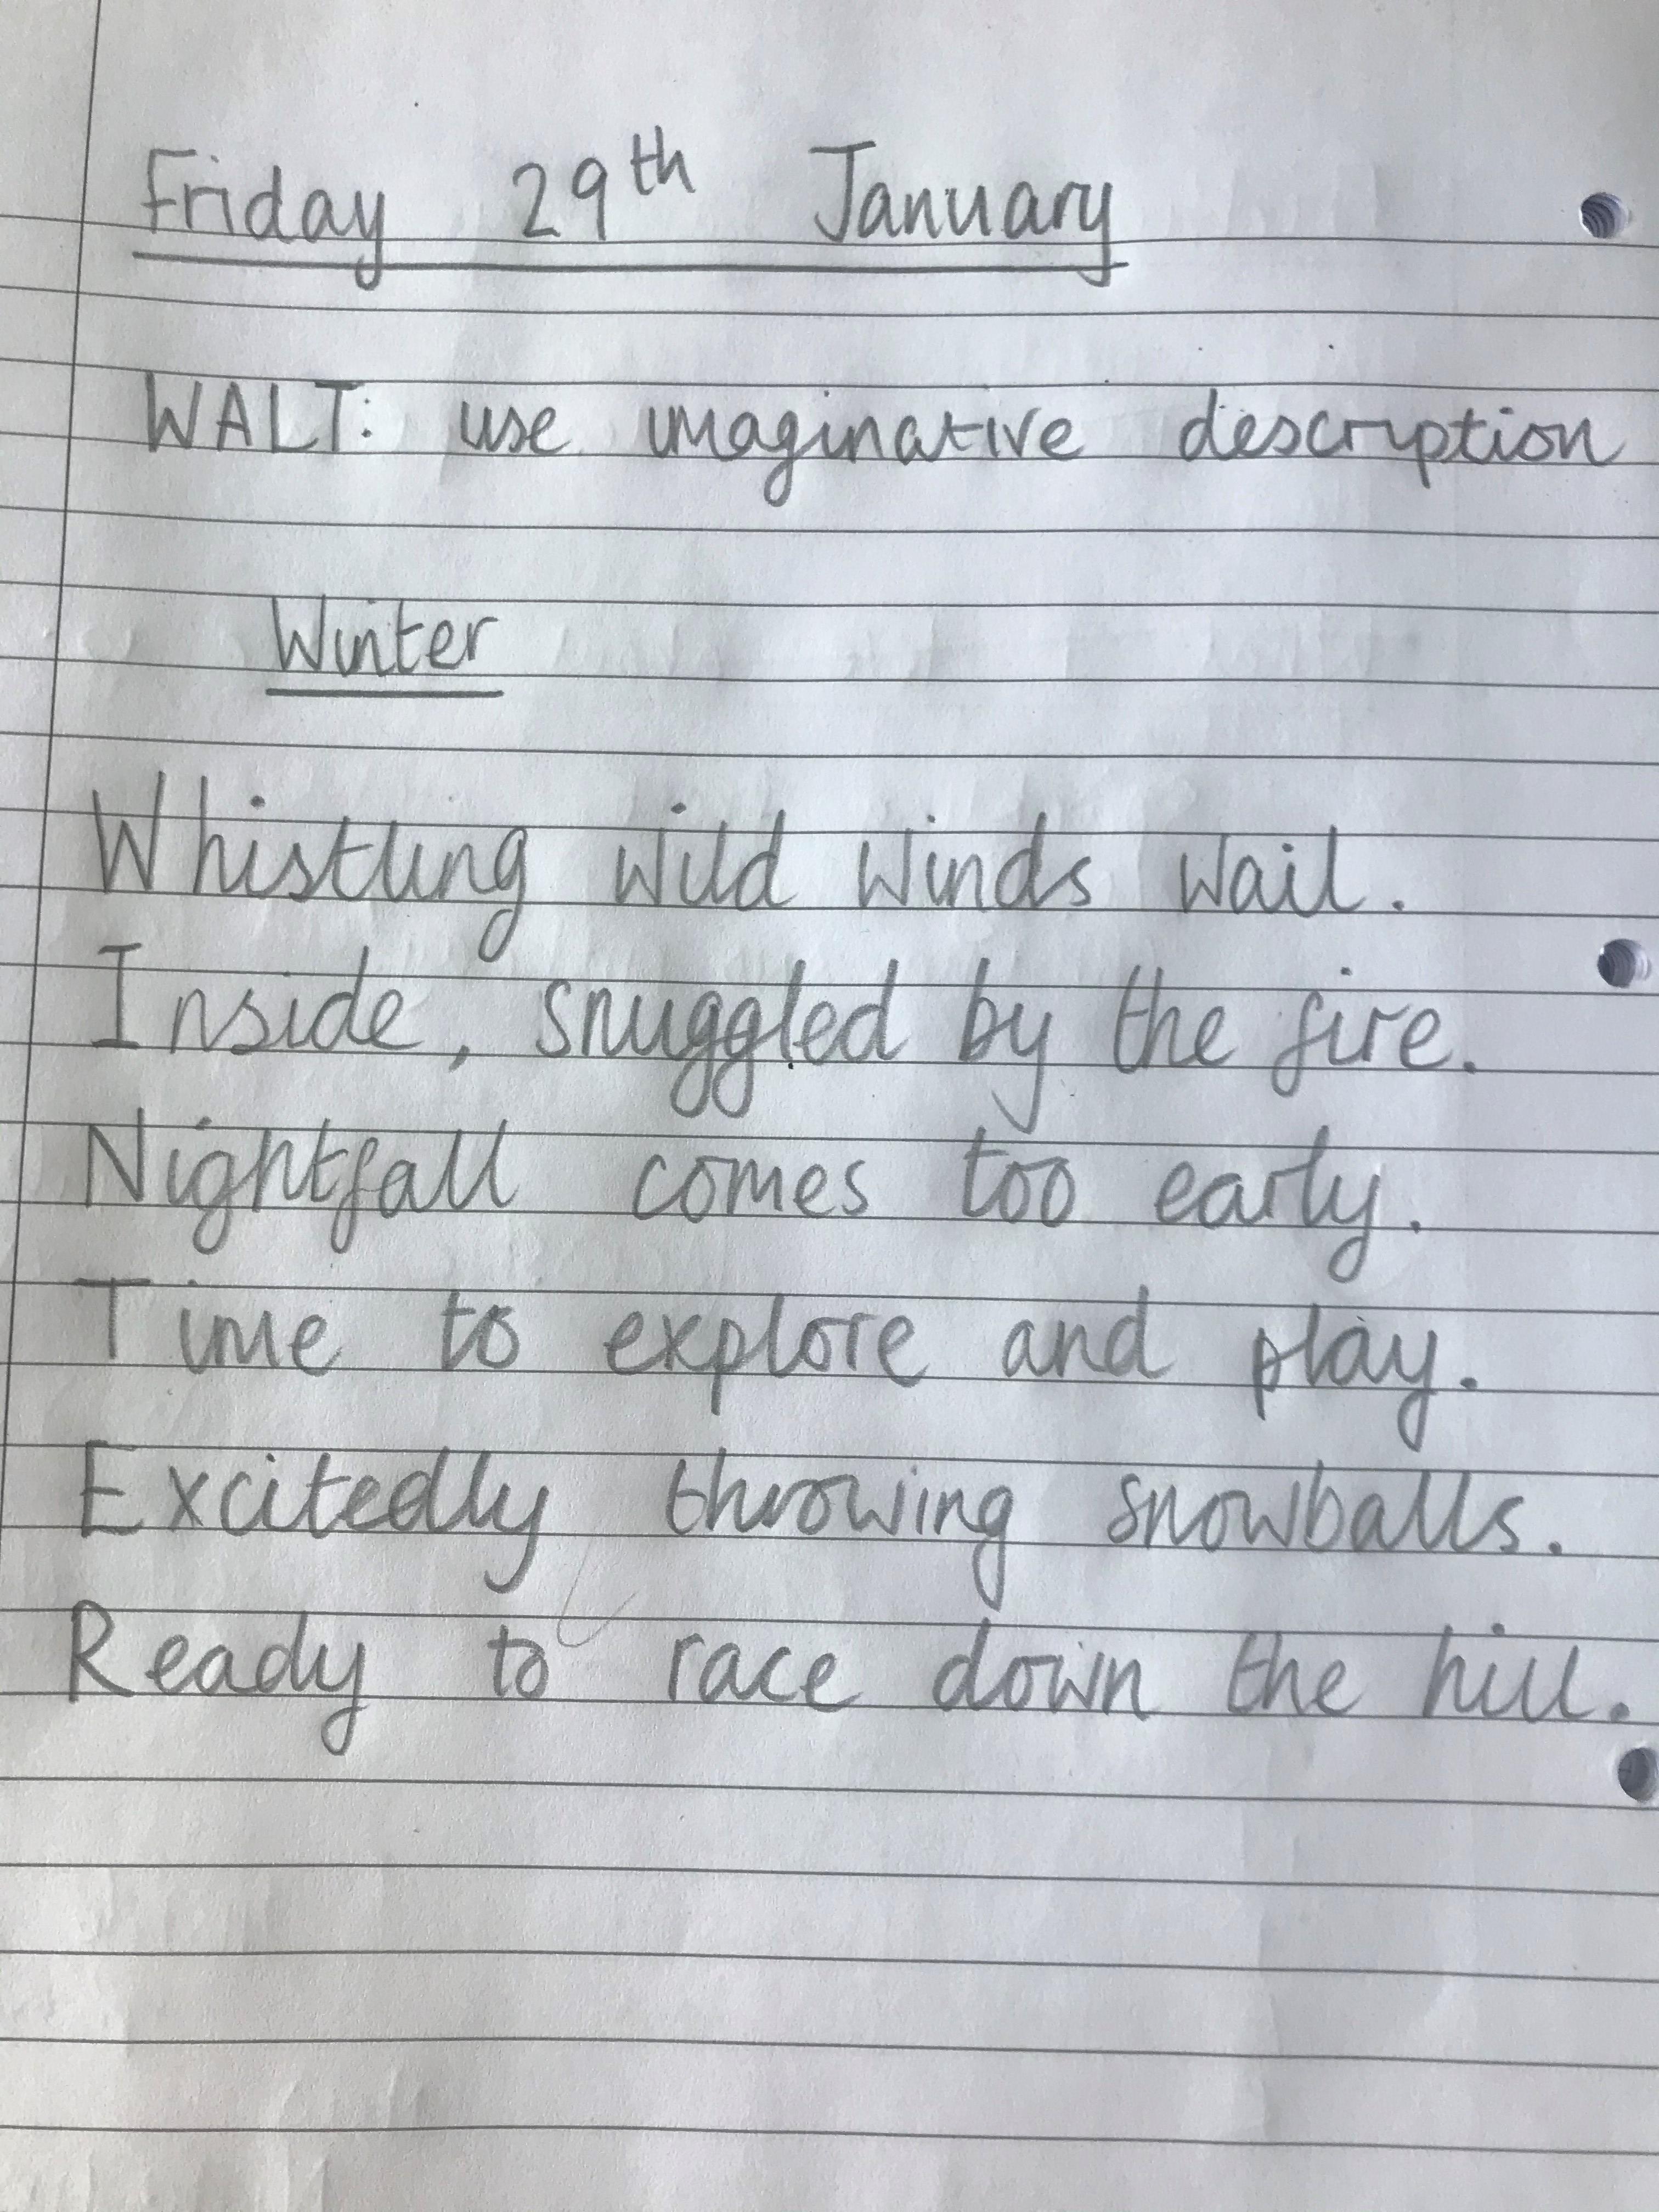 Friday 29th January
WALT: use imaginative description
Winter
Whistling wild winds wail.
Inside, snuggled by the fire.
Nightfall comes too early.
Time to explore and play.
Excitedly throwing snowballs.
Ready to race down the hill.